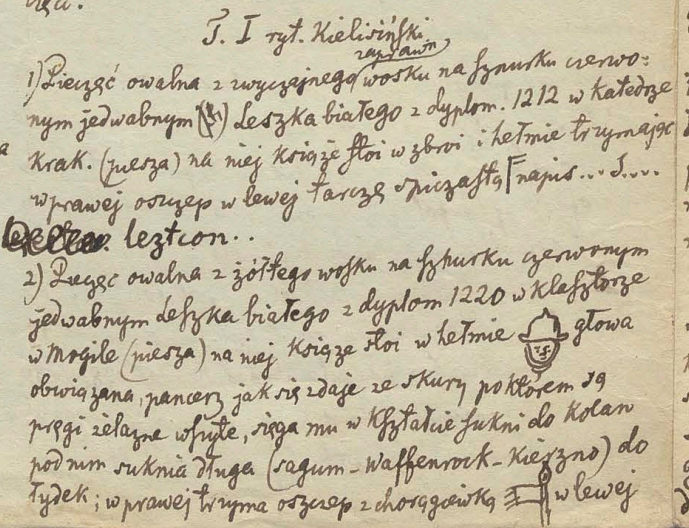 T. I ryt. Kielisiński
1) Pieczęć owalna z zwyczajnego wosku na sznurku czerwo:
nym jedwabnym Leszka białego z dyplom. 1212 w katedrze
krak. (piesza) na niej książe stoi w zbroi i hełmie trzymając
w prawej oszczep w lewej tarczę spiczastą napis... S....
leztcon..
2) Pieczęć owalna z żółtego wosku na sznurku czerwonym
jedwabnym Leszka białego z dyplom 1220 w klasztorze
w Mogile (piesza) na niej książe stoi w hełmie głowa
obwiązana, pancerz jak się zdaje ze skury po którem są
pręgi żelazne wszyte, sięga mu w kształcie sukni do kolan
pod nim suknia długa (sagum - Waffenrock - Kierzno) do
łydek; w prawej trzyma oszczep z chorągiewką w lewej